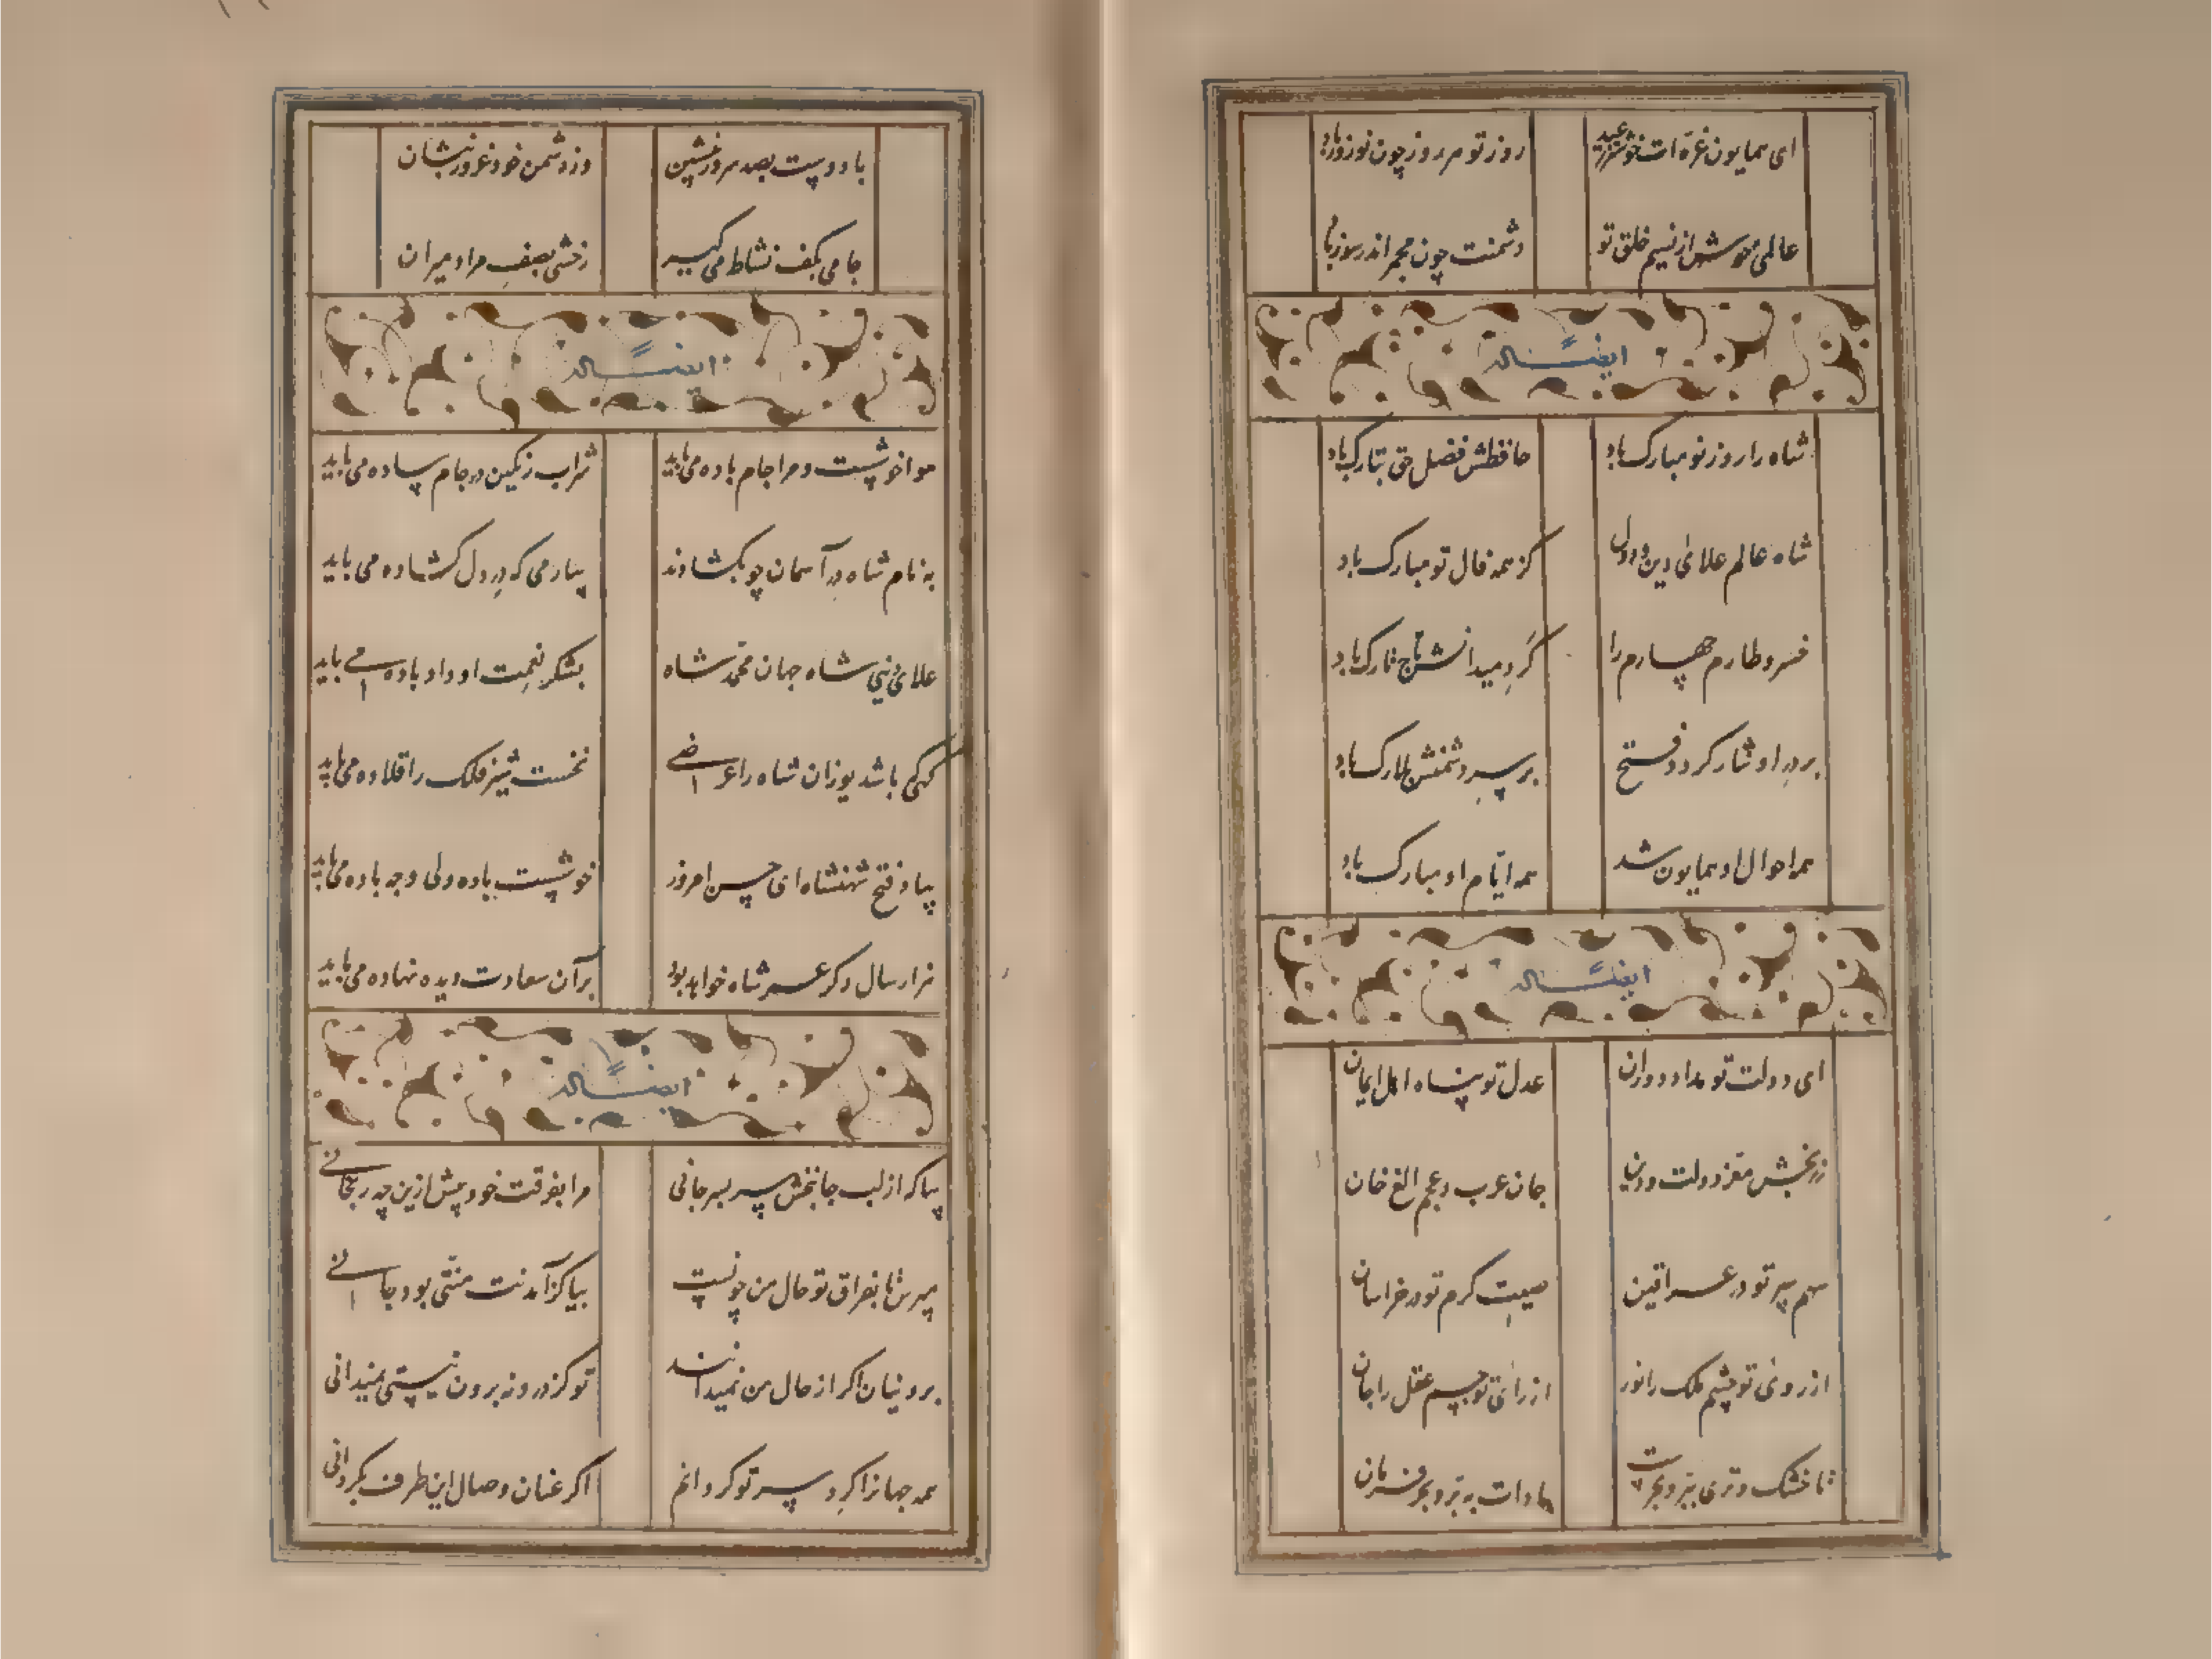 ای همایون غره ات خوشتر ز عید روز تو هر روز چون نوروز باد
عالمی خوش از نسیم خلق تو دشمنت چون مجمر اندر سوز باد
ایضاً له
شاه را روز نو مبارک باد حافظش فضل حق تبارک باد
شاه عالم علائ دین و دول کز همه فال تو مبارک باد
خسرو طارم چهارم را گرد میدانش تاج تارک باد
بر در او نثار کردد فتح بر سر دشمنش بلارک باد
همه احوال او همایون شد همه ایام او مبارک باد
ایضاً له
ای دولت تو مدار دوران عدل تو پناه اهل ایمان
زر بخش معز دولت و دین جان عرب و عجم الغ خان
سهم سپر تو در عراقین صیت کرم تو در خراسان
از روئی تو چشم ملک را نور از رائ تو جسم عقل را جان
تا خشک و تری ببر و بحر است بادات به بر و بحر فرمان
با دوست بصد سرور بنشین وز دشمن خود غرور بنشان
جامی بکف نشاط می گیر رخشی بصف مراد میران
ایضاً له
هوا خوشست و مرا جام باده می باید شراب رنگین در جام ساده می باید
به نام شاه در آسمان چو بگشادند بیار می که در دل کشاده می باید
علائ دنیی شاه جهان محمد شاه بشکر نعمت او داد باده می باید
گهی که باشد یوزان شاه را عرضی نخست شیر فلک را قلاده می باید
بیاد فتح شهنشاه ای حسن امروز خوشست باده ولی وجه باده می باید
هزار سال دگر عمر شاه خواهد بود بر آن سعادت دیده نهاده می باید
ایضاً له
بیا که از لب جانبخش سر بسر جانی مرا بفرقت خود بیش ازین چه رنجانی
مپرس تا بفراق تو حال من چونست بیا کز آمدنت منتی بود جانی
برونیان اگر از حال من نمیدانند تو کز درونه برون نیستی نمیدانی
همه جهان را گرد سر تو گردانم اگر عنان وصال این طرف بگردانی